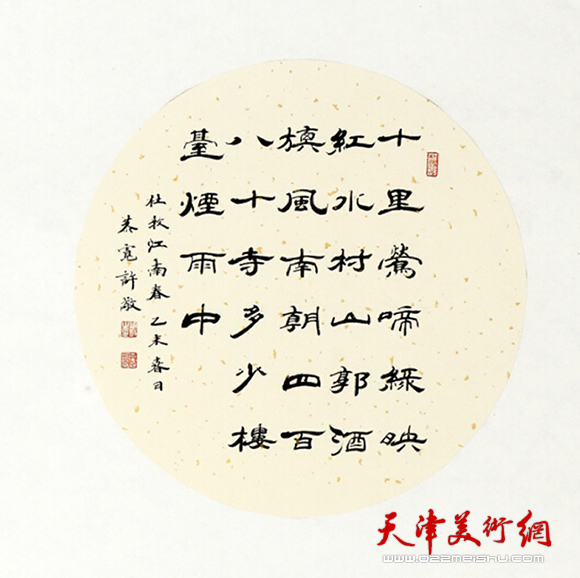 十里鶯啼綠映
紅水村山郭酒
旗風南朝四百
八十寺多少樓
臺煙雨中
杜牧江南春 乙未春日
許敬
天津美術網
www.022meishu.com